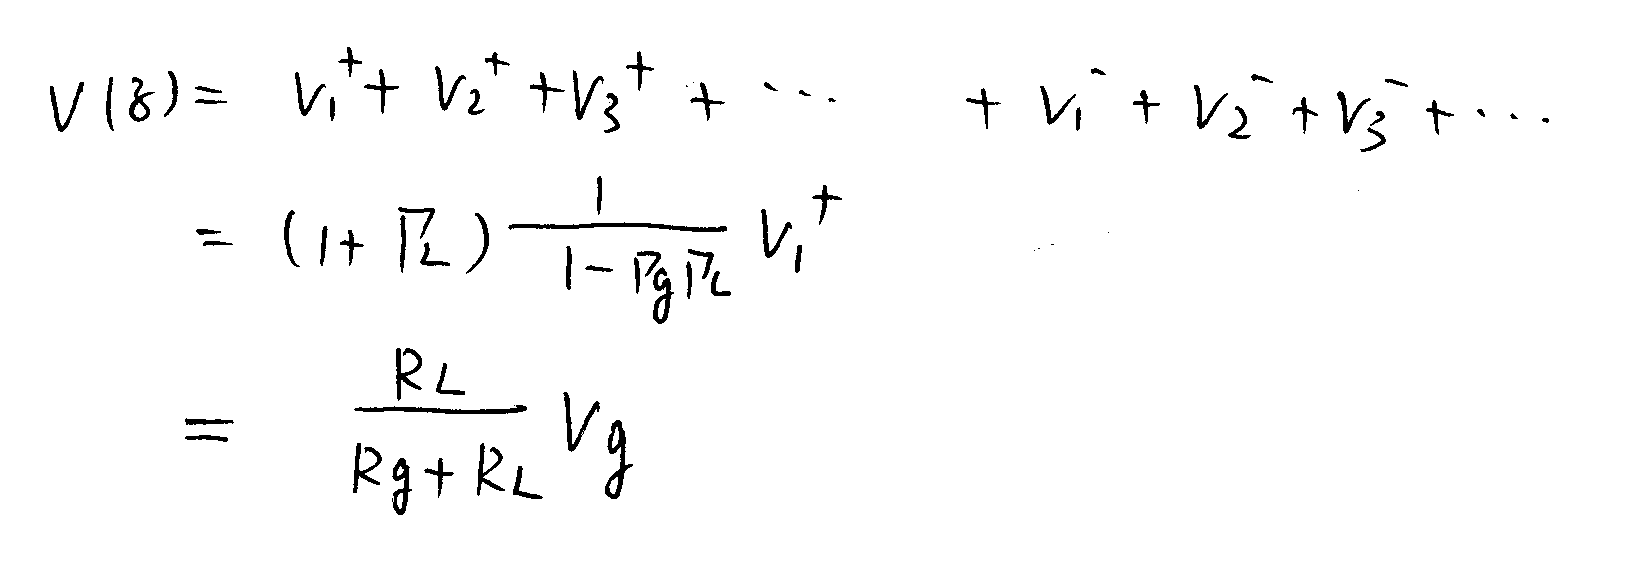 V(z) = V₁⁺ + V₂⁺ + V₃⁺ + ··· + V₁⁻ + V₂⁻ + V₃⁻ + ···
= (1 + Γ_L) \frac{1}{1 - Γ_g Γ_L} V₁⁺
= \frac{R_L}{R_g + R_L} V_g